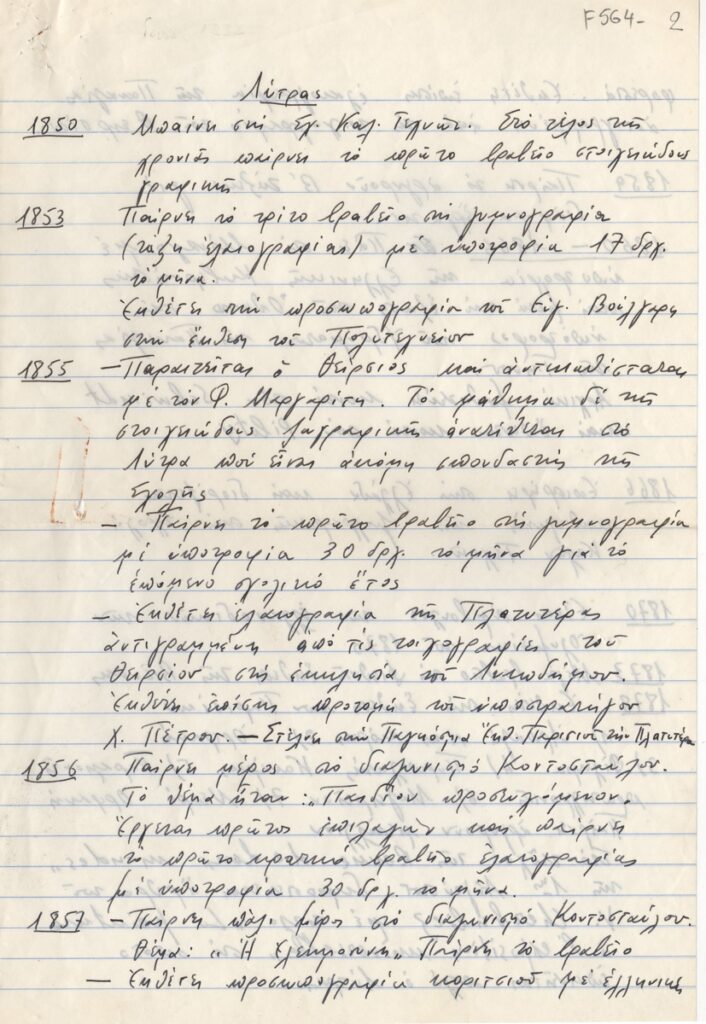 F564- 2
Λύτρας
1850 Μπαίνει στην Σχ. Καλ. Τεχνών. Στο τέλος της
χρονιάς παίρνει το πρώτο βραβείο στοιχειώδους
γραφικής
1853 Παίρνει το τρίτο βραβείο στη γυμνογραφία
(τάξη ἐλαιογραφίας) μέ ὑποτροφία - 17 δρχ.
το μήνα.
Ἐκθέτει την προσωπογραφία τοῦ Εὐγ. Βούλγαρη
στην ἔκθεση τοῦ Πολυτεχνείου
1855 - Παραιτεῖται ὁ Θείρσιος καί ἀντικαθίσταται
μέ τόν Φ. Μαργαρίτη. Τό μάθημα δέ της
στοιχειώδους ζωγραφικῆς ἀνατίθεται στό
Λύτρα πού εἶναι ἀκόμη σπουδαστής της
Σχολῆς
- Παίρνει το πρῶτο βραβεῖο στη γυμνογραφία
μέ ὑποτροφία 30 δρχ. το μήνα γιά τό
ἑπόμενο σχολικό ἔτος
- Ἐκθέτει ἐλαιογραφία της Πλατυτέρας
ἀντιγραμμένη από τις τοιχογραφίες τοῦ
Θειρσίου στή ἐκκλησία τοῦ Λυκοδήμου.
Ἐκθέτει ἐπίσης προτομή τοῦ ὑποστρατήγου
Χ. Πέτρου. - Στέλνει στην Παγκόσμια Ἔκθ. Παρισιοῦ την Πλατυτέρα
1856 Παίρνει μέρος στο διαγωνισμό Κοντοσταύλου.
Τό θέμα ἦταν: „Παιδίον προσευχόμενον„
Ἔρχεται πρῶτος ἐπιλαχών καί παίρνει
το πρῶτο κρατικό βραβεῖο ἐλαιογραφίας
μέ ὑποτροφία 30 δρχ. το μήνα.
1857 - Παίρνει πάλι μέρος στό διαγωνισμό Κοντοσταύλου.
Θέμα: „Ἡ Ἐλεημοσύνη„ Παίρνει τό βραβεῖο
- Ἐκθέτει προσωπογραφία κοριτσιοῦ μέ ἑλληνικές